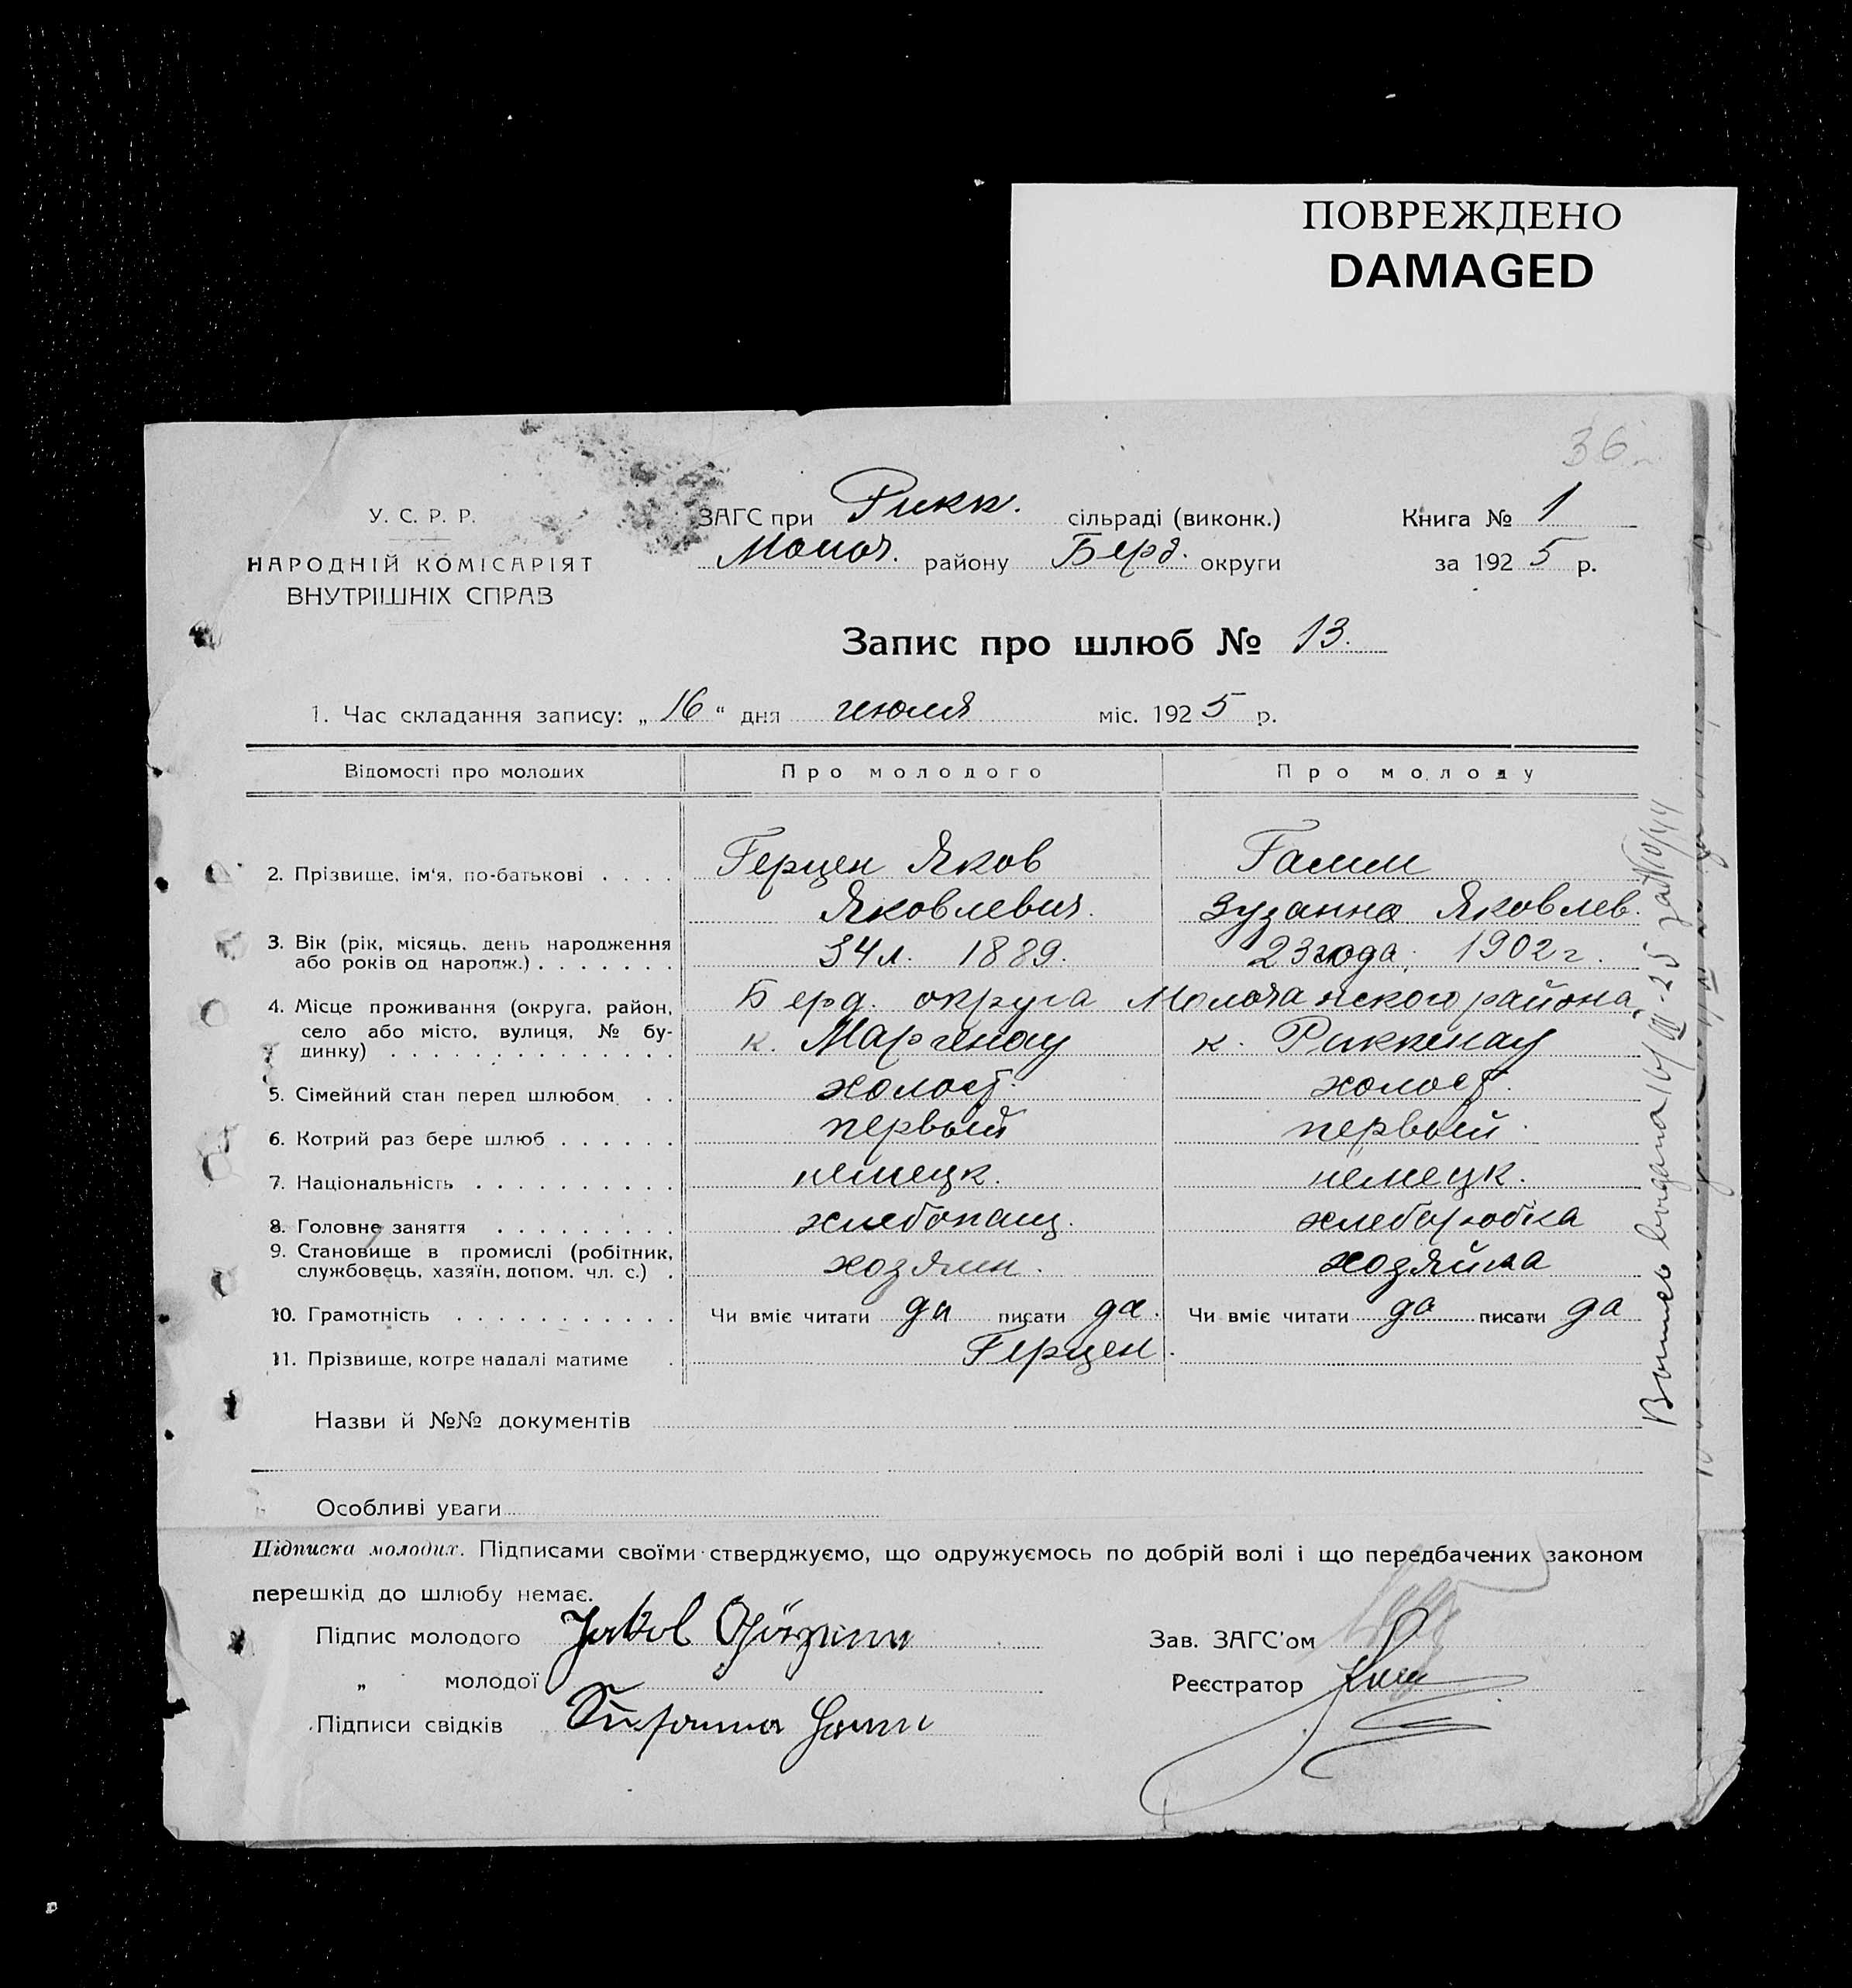 ПОВРЕЖДЕНО
DAMAGED
36
У. С. Р. Р.
НАРОДНІЙ КОМІСАРІЯТ
ВНУТРІШНІХ СПРАВ
ЗАГС при Рикк. сільраді (виконк.)
Молоч. району Берд. округи
Книга № 1
за 1925 р.
Запис про шлюб № 13.
1. Час складання запису: „16“ дня июля міс. 1925 р.
Відомості про молодих
Про молодого
Про молоду
2. Прізвище, ім'я, по-батькові . . . . Герцен Яков Гамм
Яковлевич. Зузанна Яковлев.
3. Вік (рік, місяць, день народження
або років од нарopж.) . . . . . . . 34 л. 1889. 23 года. 1902 г.
4. Місце проживання (округа, район, Берд. округа Молочанского района,
село або місто, вулиця, № бу-
динку) . . . . . . . . . . . . . . к. Маргенау к. Риккенау
5. Сімейний стан перед шлюбом . . холост. холост.
6. Котрий раз бере шлюб . . . . . . первый первый
7. Національність . . . . . . . . . . немецк. немецк.
8. Головне заняття . . . . . . . . . хлебопащ. хлеборобка
9. Становище в промислі (робітник,
службовець, хазяїн, допом. чл. с.) . хозяин. хозяйка
10. Грамотність . . . . . . . . . . . Чи вміє читати да писати да. Чи вміє читати да писати да
11. Прізвище, котре надалі матиме . Герцен.
Назви й №№ документів
Особливі уваги
Підписка молодих. Підписами своїми стверджуємо, що одружуємось по добрій волі і що передбачених законом
перешкід до шлюбу немає.
Підпис молодого Jakob Görzen
„ молодої
Підписи свідків Susanna Hamm
Зав. ЗАГС'ом
Реєстратор
Выпись выдана 16/VII-25 за №10/44